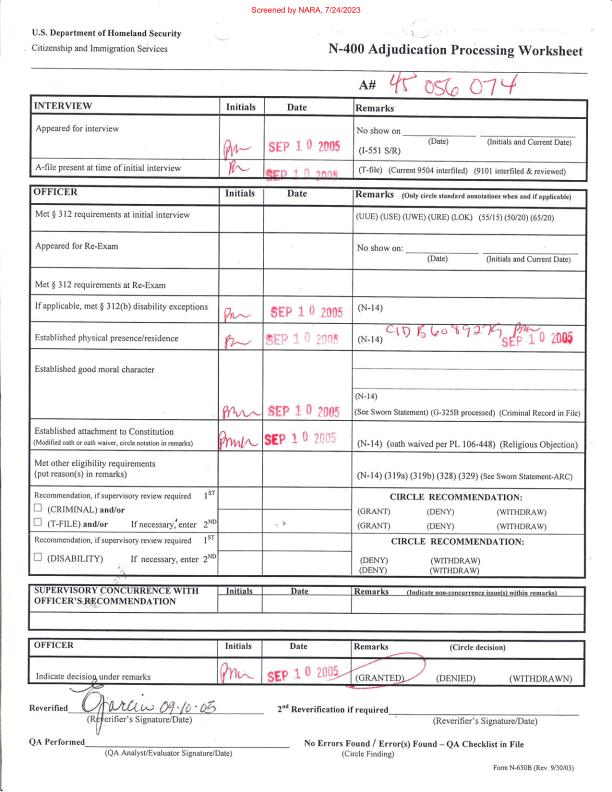 Screened by NARA, 7/24/2023
U.S. Department of Homeland Security
Citizenship and Immigration Services
N-400 Adjudication Processing Worksheet
A# 45 056 074
INTERVIEW Initials Date Remarks
Appeared for interview SEP 10 2005 No show on
(Date) (Initials and Current Date)
(I-551 S/R)
A-file present at time of initial interview SEP 10 2005 (T-file) (Current 9504 interfiled) (9101 interfiled & reviewed)
OFFICER Initials Date Remarks (Only circle standard annotations when and if applicable)
Met § 312 requirements at initial interview (UUE) (USE) (UWE) (URE) (LOK) (55/15) (50/20) (65/20)
Appeared for Re-Exam No show on:
(Date) (Initials and Current Date)
Met § 312 requirements at Re-Exam
If applicable, met § 312(b) disability exceptions SEP 10 2005 (N-14)
Established physical presence/residence SEP 10 2005 (N-14) SEP 10 2005
Established good moral character
(N-14)
SEP 10 2005 (See Sworn Statement) (G-325B processed) (Criminal Record in File)
Established attachment to Constitution SEP 10 2005
(Modified oath or oath waiver, circle notation in remarks) (N-14) (oath waived per PL 106-448) (Religious Objection)
Met other eligibility requirements
(put reason(s) in remarks) (N-14) (319a) (319b) (328) (329) (See Sworn Statement-ARC)
Recommendation, if supervisory review required 1ST CIRCLE RECOMMENDATION:
(CRIMINAL) and/or (GRANT) (DENY) (WITHDRAW)
(T-FILE) and/or If necessary, enter 2ND (GRANT) (DENY) (WITHDRAW)
Recommendation, if supervisory review required 1ST CIRCLE RECOMMENDATION:
(DISABILITY) If necessary, enter 2ND (DENY) (WITHDRAW)
(DENY) (WITHDRAW)
SUPERVISORY CONCURRENCE WITH Initials Date Remarks (Indicate non-concurrence issue(s) within remarks)
OFFICER'S RECOMMENDATION
OFFICER Initials Date Remarks (Circle decision)
Indicate decision under remarks SEP 10 2005 (GRANTED) (DENIED) (WITHDRAWN)
Reverified Garcia 09-10-05 2nd Reverification if required
(Reverifier's Signature/Date) (Reverifier's Signature/Date)
QA Performed No Errors Found / Error(s) Found – QA Checklist in File
(QA Analyst/Evaluator Signature/Date) (Circle Finding)
Form N-650B (Rev. 9/30/03)